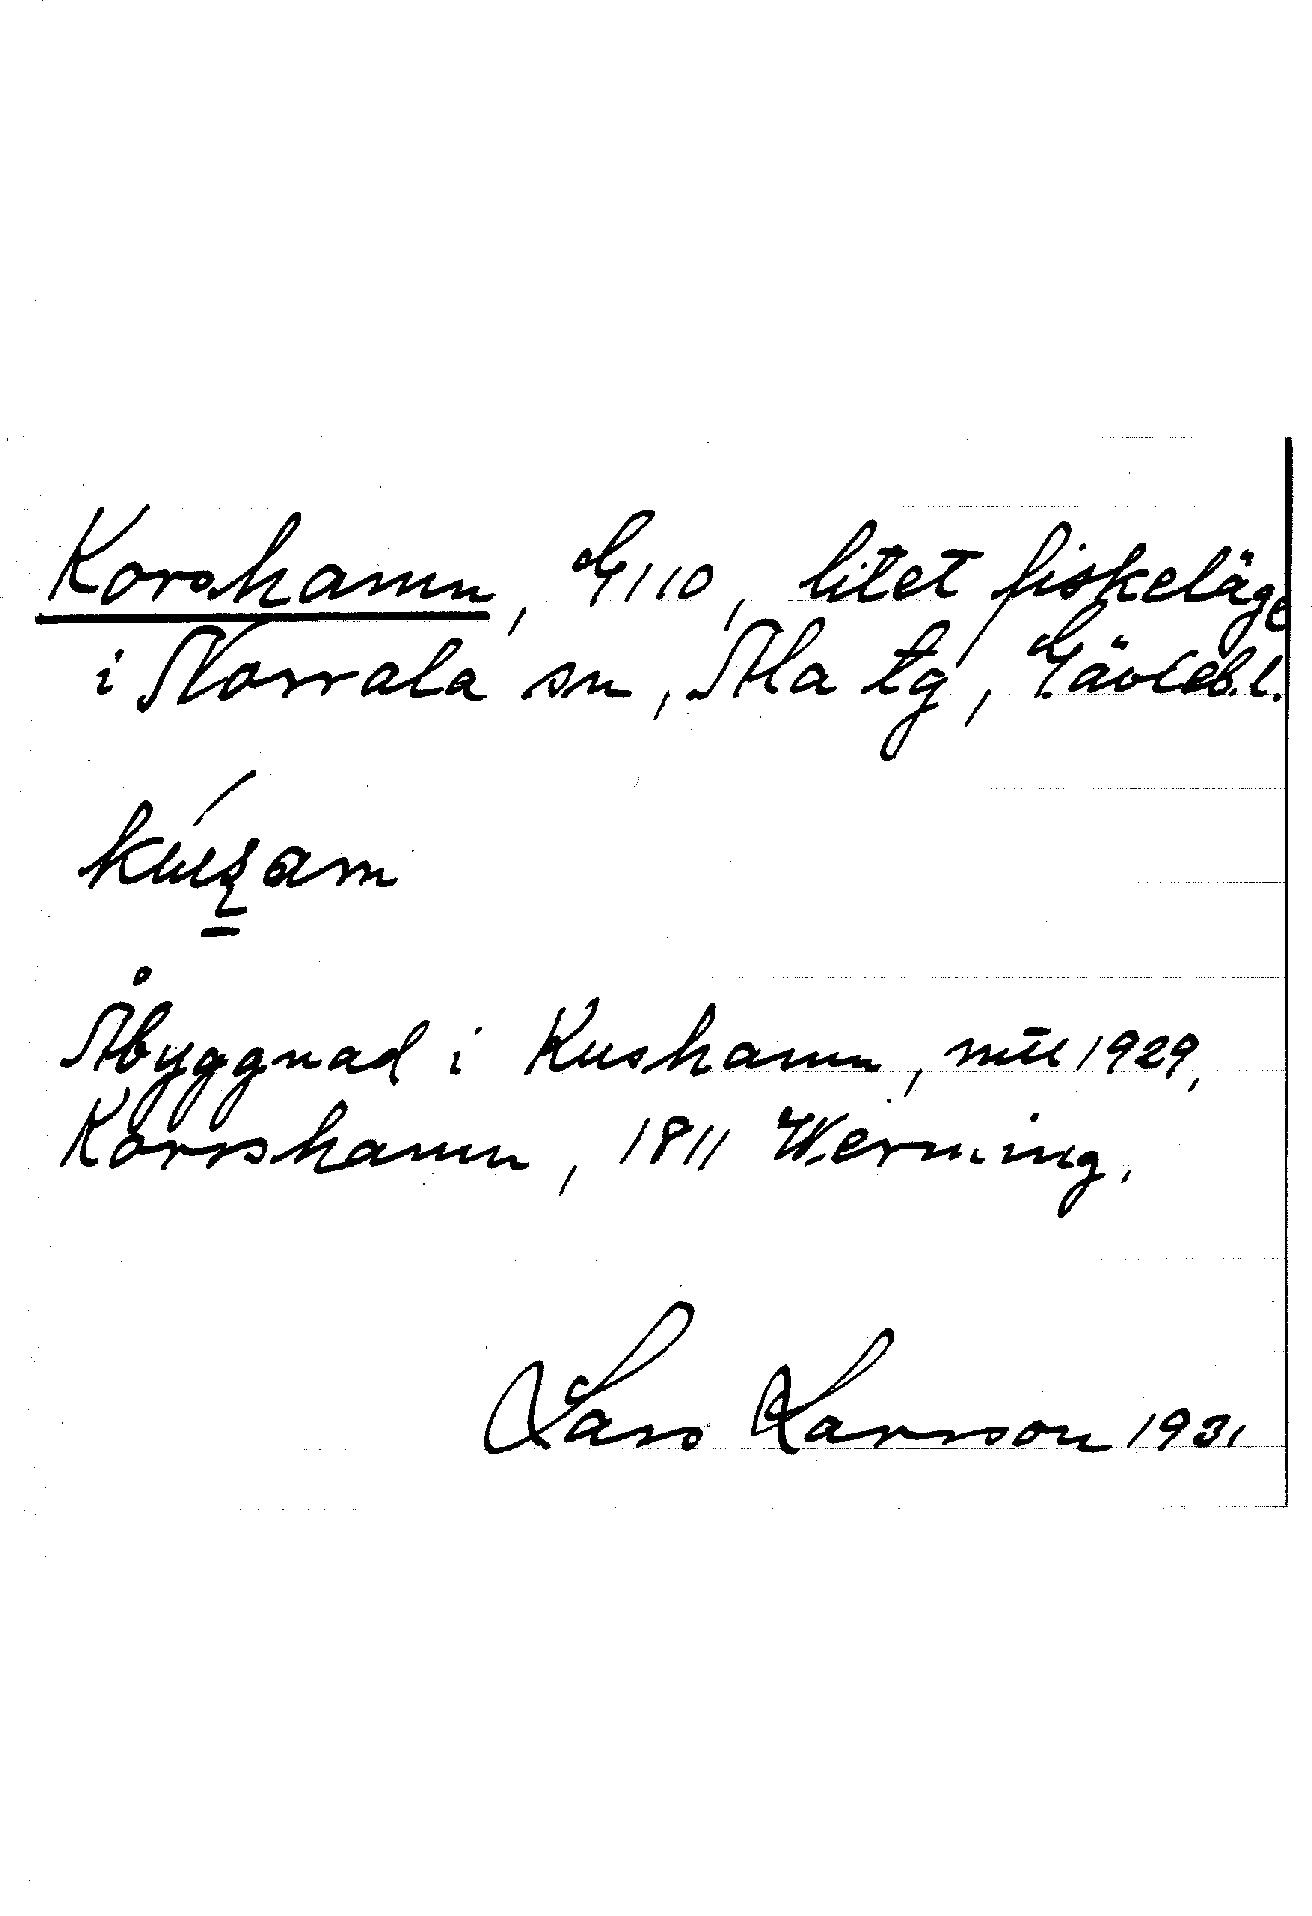 Korshamn, G110, litet fiskeläge
i Norrala sn, Ala tg, Gävleb.l.
Åbyggnad i Kushamn, mtl 1929,
Korrshamn, 1811 Werming.
Lars Larsson 1931